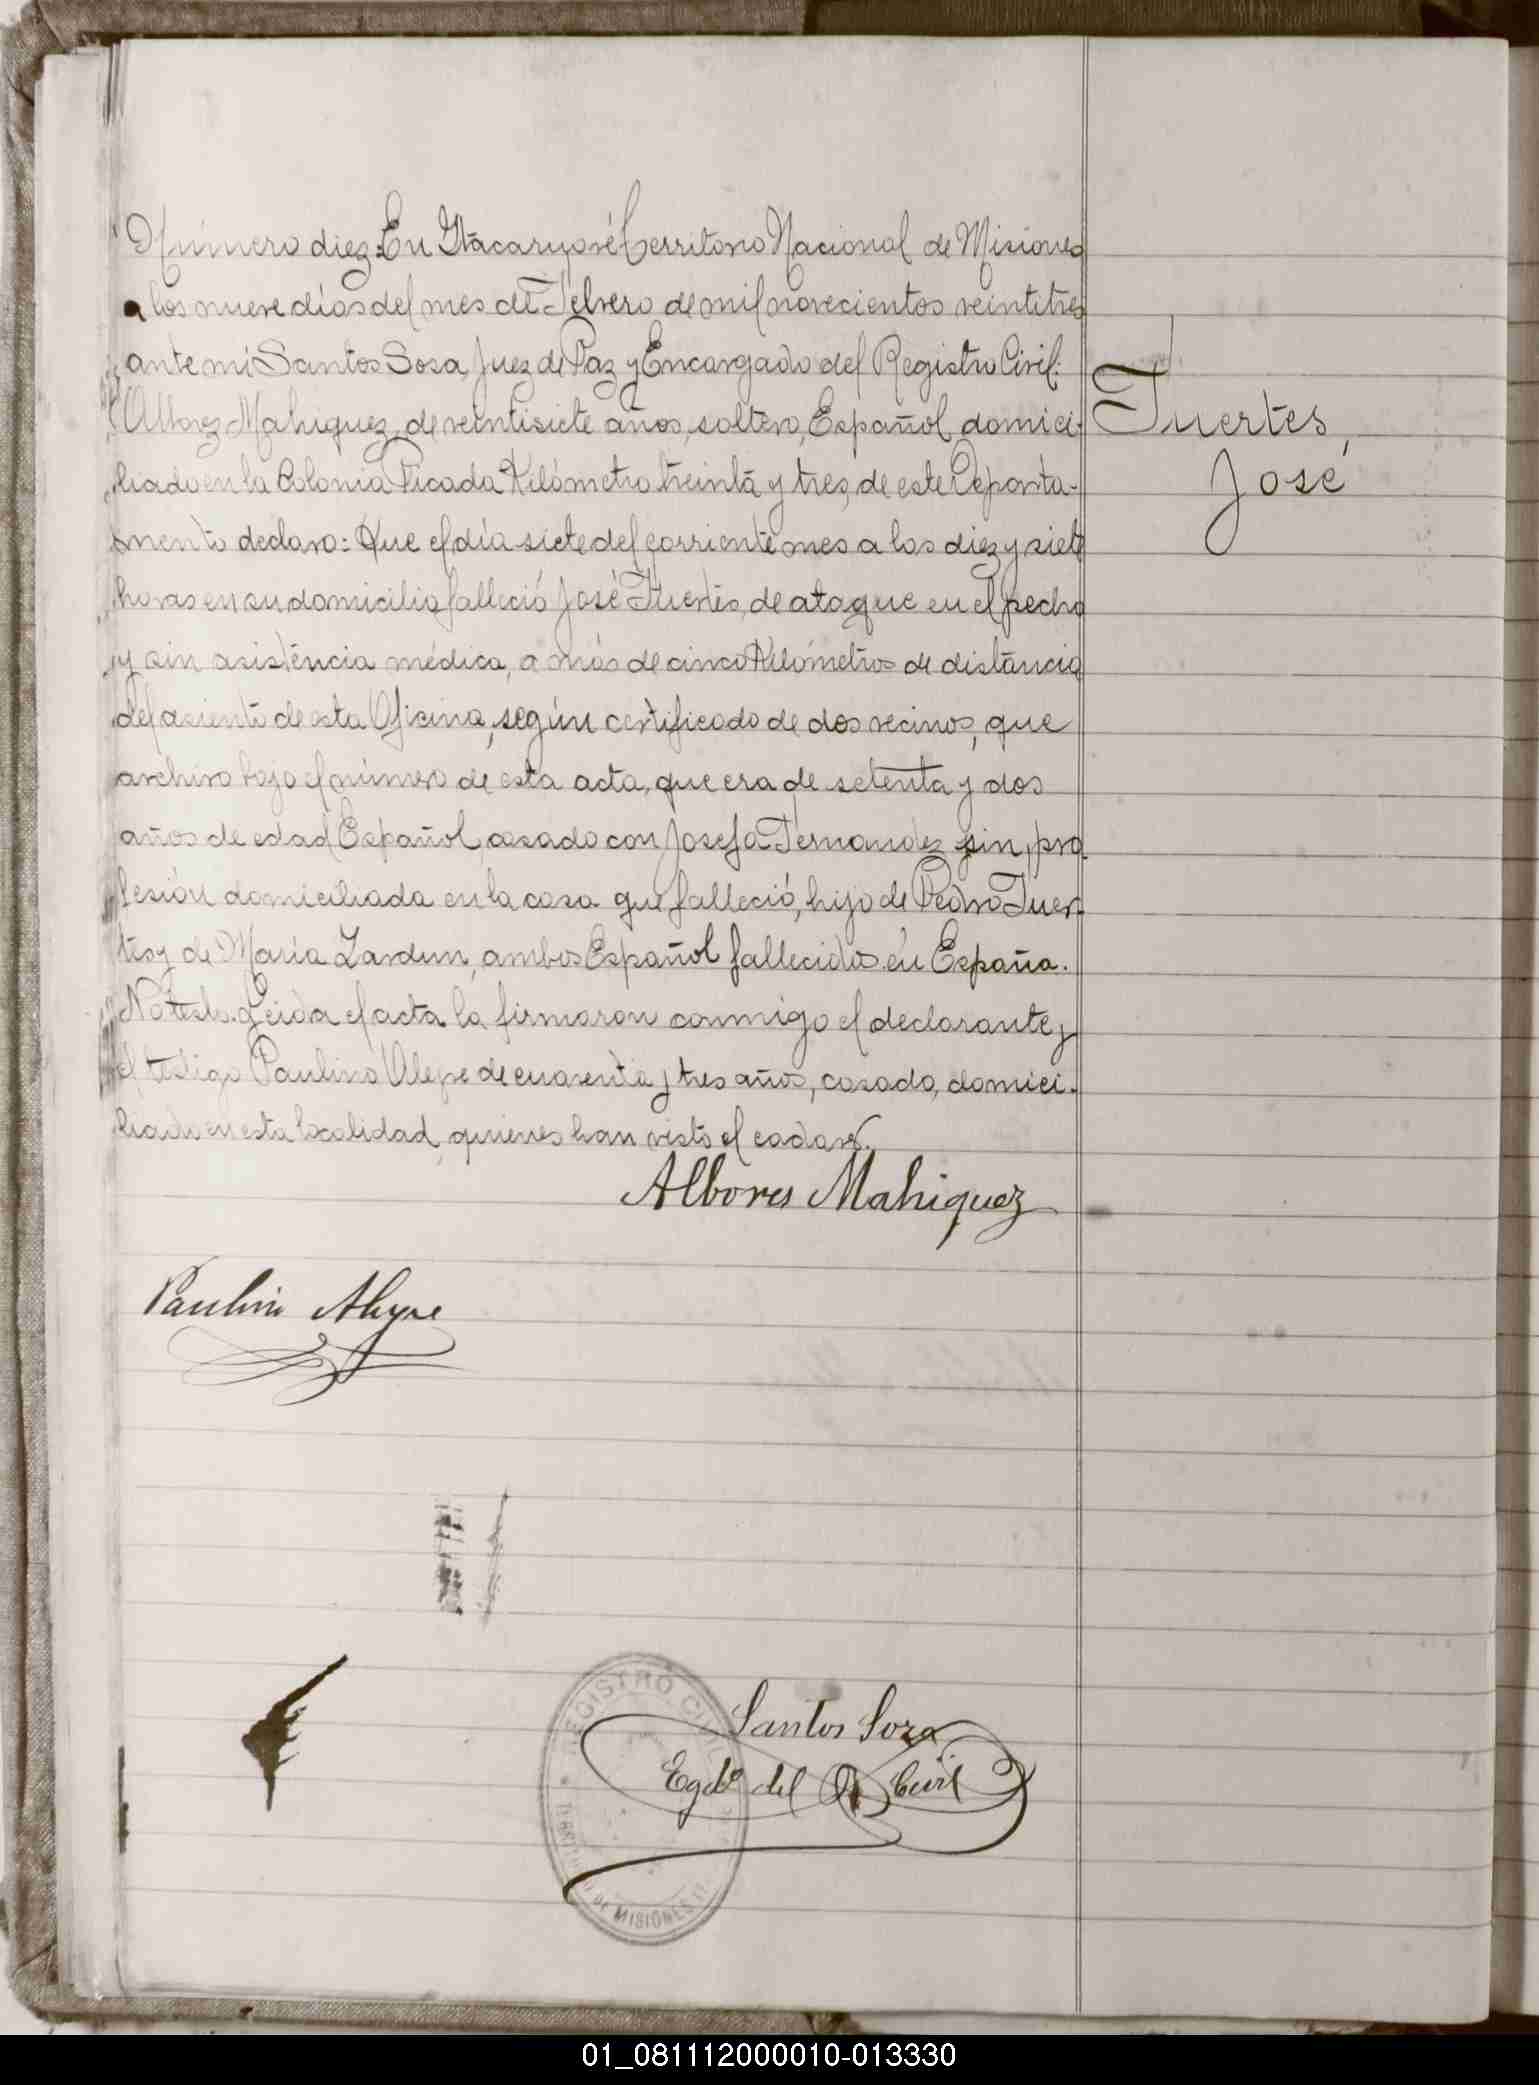 Número diez: En Itacaruaré Territorio Nacional de Misiones
a los nueve días del mes de Febrero de mil novecientos veintitres
ante mí Santos Sosa, Juez de Paz y Encargado del Registro Civil:
Mahiquez, de veintisiete años, soltero, Español, domici-
liado en la Colonia Picada Kilómetro treinta y tres, de este Departa-
mento declaro: Que el día siete del corriente mes a las diez y siete
horas en su domicilio falleció José Fuertes, de ataque en el pecho
y sin asistencia médica, a más de cinco Kilómetros de distancia
del asiento de esta Oficina, según certificado de dos vecinos, que
archivo bajo el número de esta acta, que era de setenta y dos
años de edad Español, casado con Josefa Fernandez sin, pro
fesión domiciliada en la casa que falleció, hijo de Pedro Fuer-
tes y de María Lardun, ambos Español fallecidos en España.
No testo. Leida el acta la firmaron conmigo el declarante y
el testigo Paulino de cuarenta y tres años, casado, domici-
liado en esta localidad, quienes han visto el cadaver.
Fuertes,
José
Albores Mahiquez
Paulino
Santos Soza
Egdo del R. Civil
REGISTRO CIVIL
DE MISIONES
01_081112000010-013330